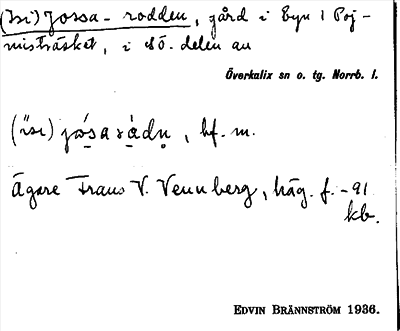 (Isi) Jossa-rodden, gård i byn 1 Poj-
misträsket, i sö. delen av
Överkalix sn o. tg. Norrb. l.
(ìsi) jåsaràdn, bf. m.
Ägare Frans V. Vennberg, häg. f. -91
kb.
EDVIN BRÄNNSTRÖM 1936.